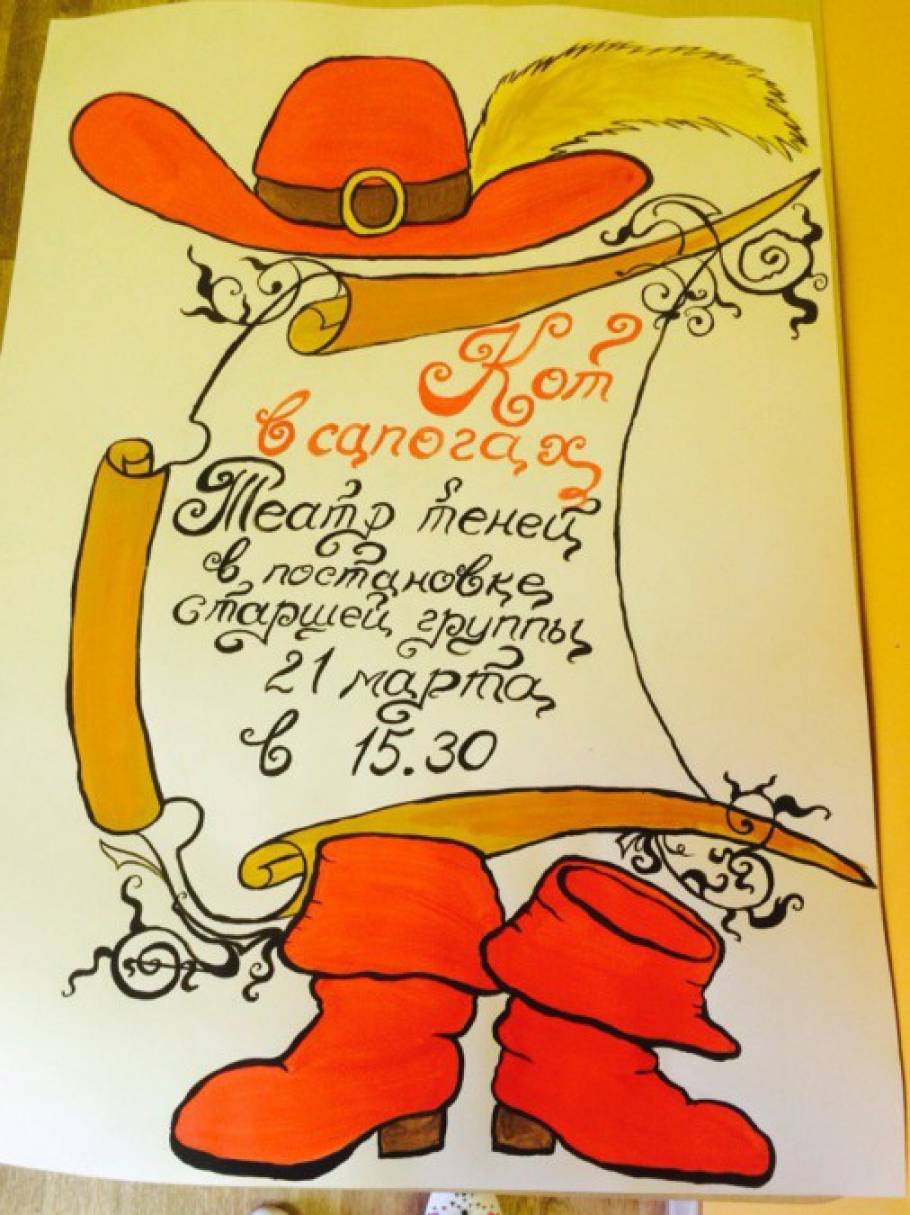 Кот
в сапогах
Театр теней
в постановке
старшей группы
21 марта
в 15.30